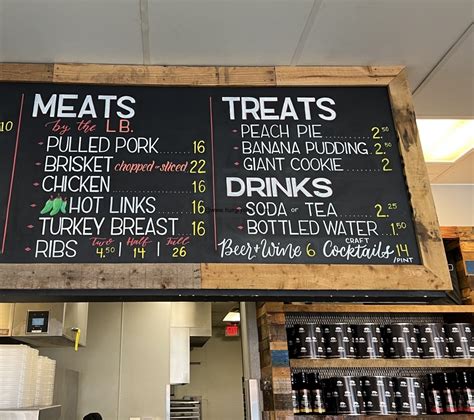 10
MEATS
by the LB.
PULLED PORK 16
BRISKET chopped or sliced 22
CHICKEN 16
HOT LINKS 16
TURKEY BREAST 16
RIBS Two 4.50 | Half 14 | Full 26
TREATS
PEACH PIE 2.50
BANANA PUDDING 2.50
GIANT COOKIE 2.50
DRINKS
SODA or TEA 2.25
BOTTLED WATER 1.50
Beer + Wine 6 CRAFT Cocktails 14 /PINT
EXIT